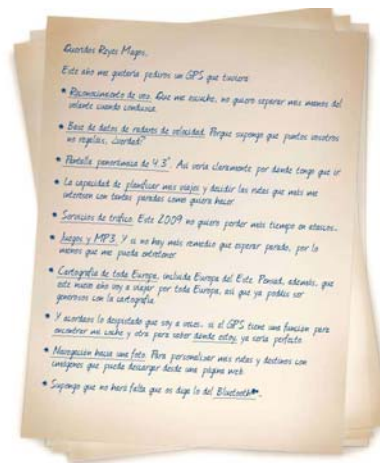 Queridos Reyes Magos,
Este año me gustaría pediros un GPS que tuviera:
* Reconocimiento de voz. Que me escuche, no quiero separar mis manos del
volante cuando conduzca.
* Base de datos de radares de velocidad. Porque supongo que puntos vosotros
no regaláis, ¿verdad?
* Pantalla panorámica de 4.3". Así vería claramente por dónde tengo que ir
* La capacidad de planificar mis viajes y decidir las rutas que más me
interesen con tantas paradas como quiera hacer
* Servicios de tráfico. Este 2009 no quiero perder más tiempo en atascos...
* Juegos y MP3. Y si no hay más remedio que esperar parado, por lo
menos que me pueda entretener
* Cartografía de toda Europa, incluida Europa del Este. Pensad, además, que
este nuevo año voy a viajar por toda Europa, así que ya podéis ser
generosos con la cartografía
* Y acordaos lo despistado que soy a veces... si el GPS tiene una función para
encontrar mi coche y otra para saber dónde estoy, ya sería perfecto
* Navegación hacia una foto. Para personalizar mis rutas y destinos con
imágenes que pueda descargar desde una página web.
* Supongo que no hará falta que os diga lo del Bluetooth...